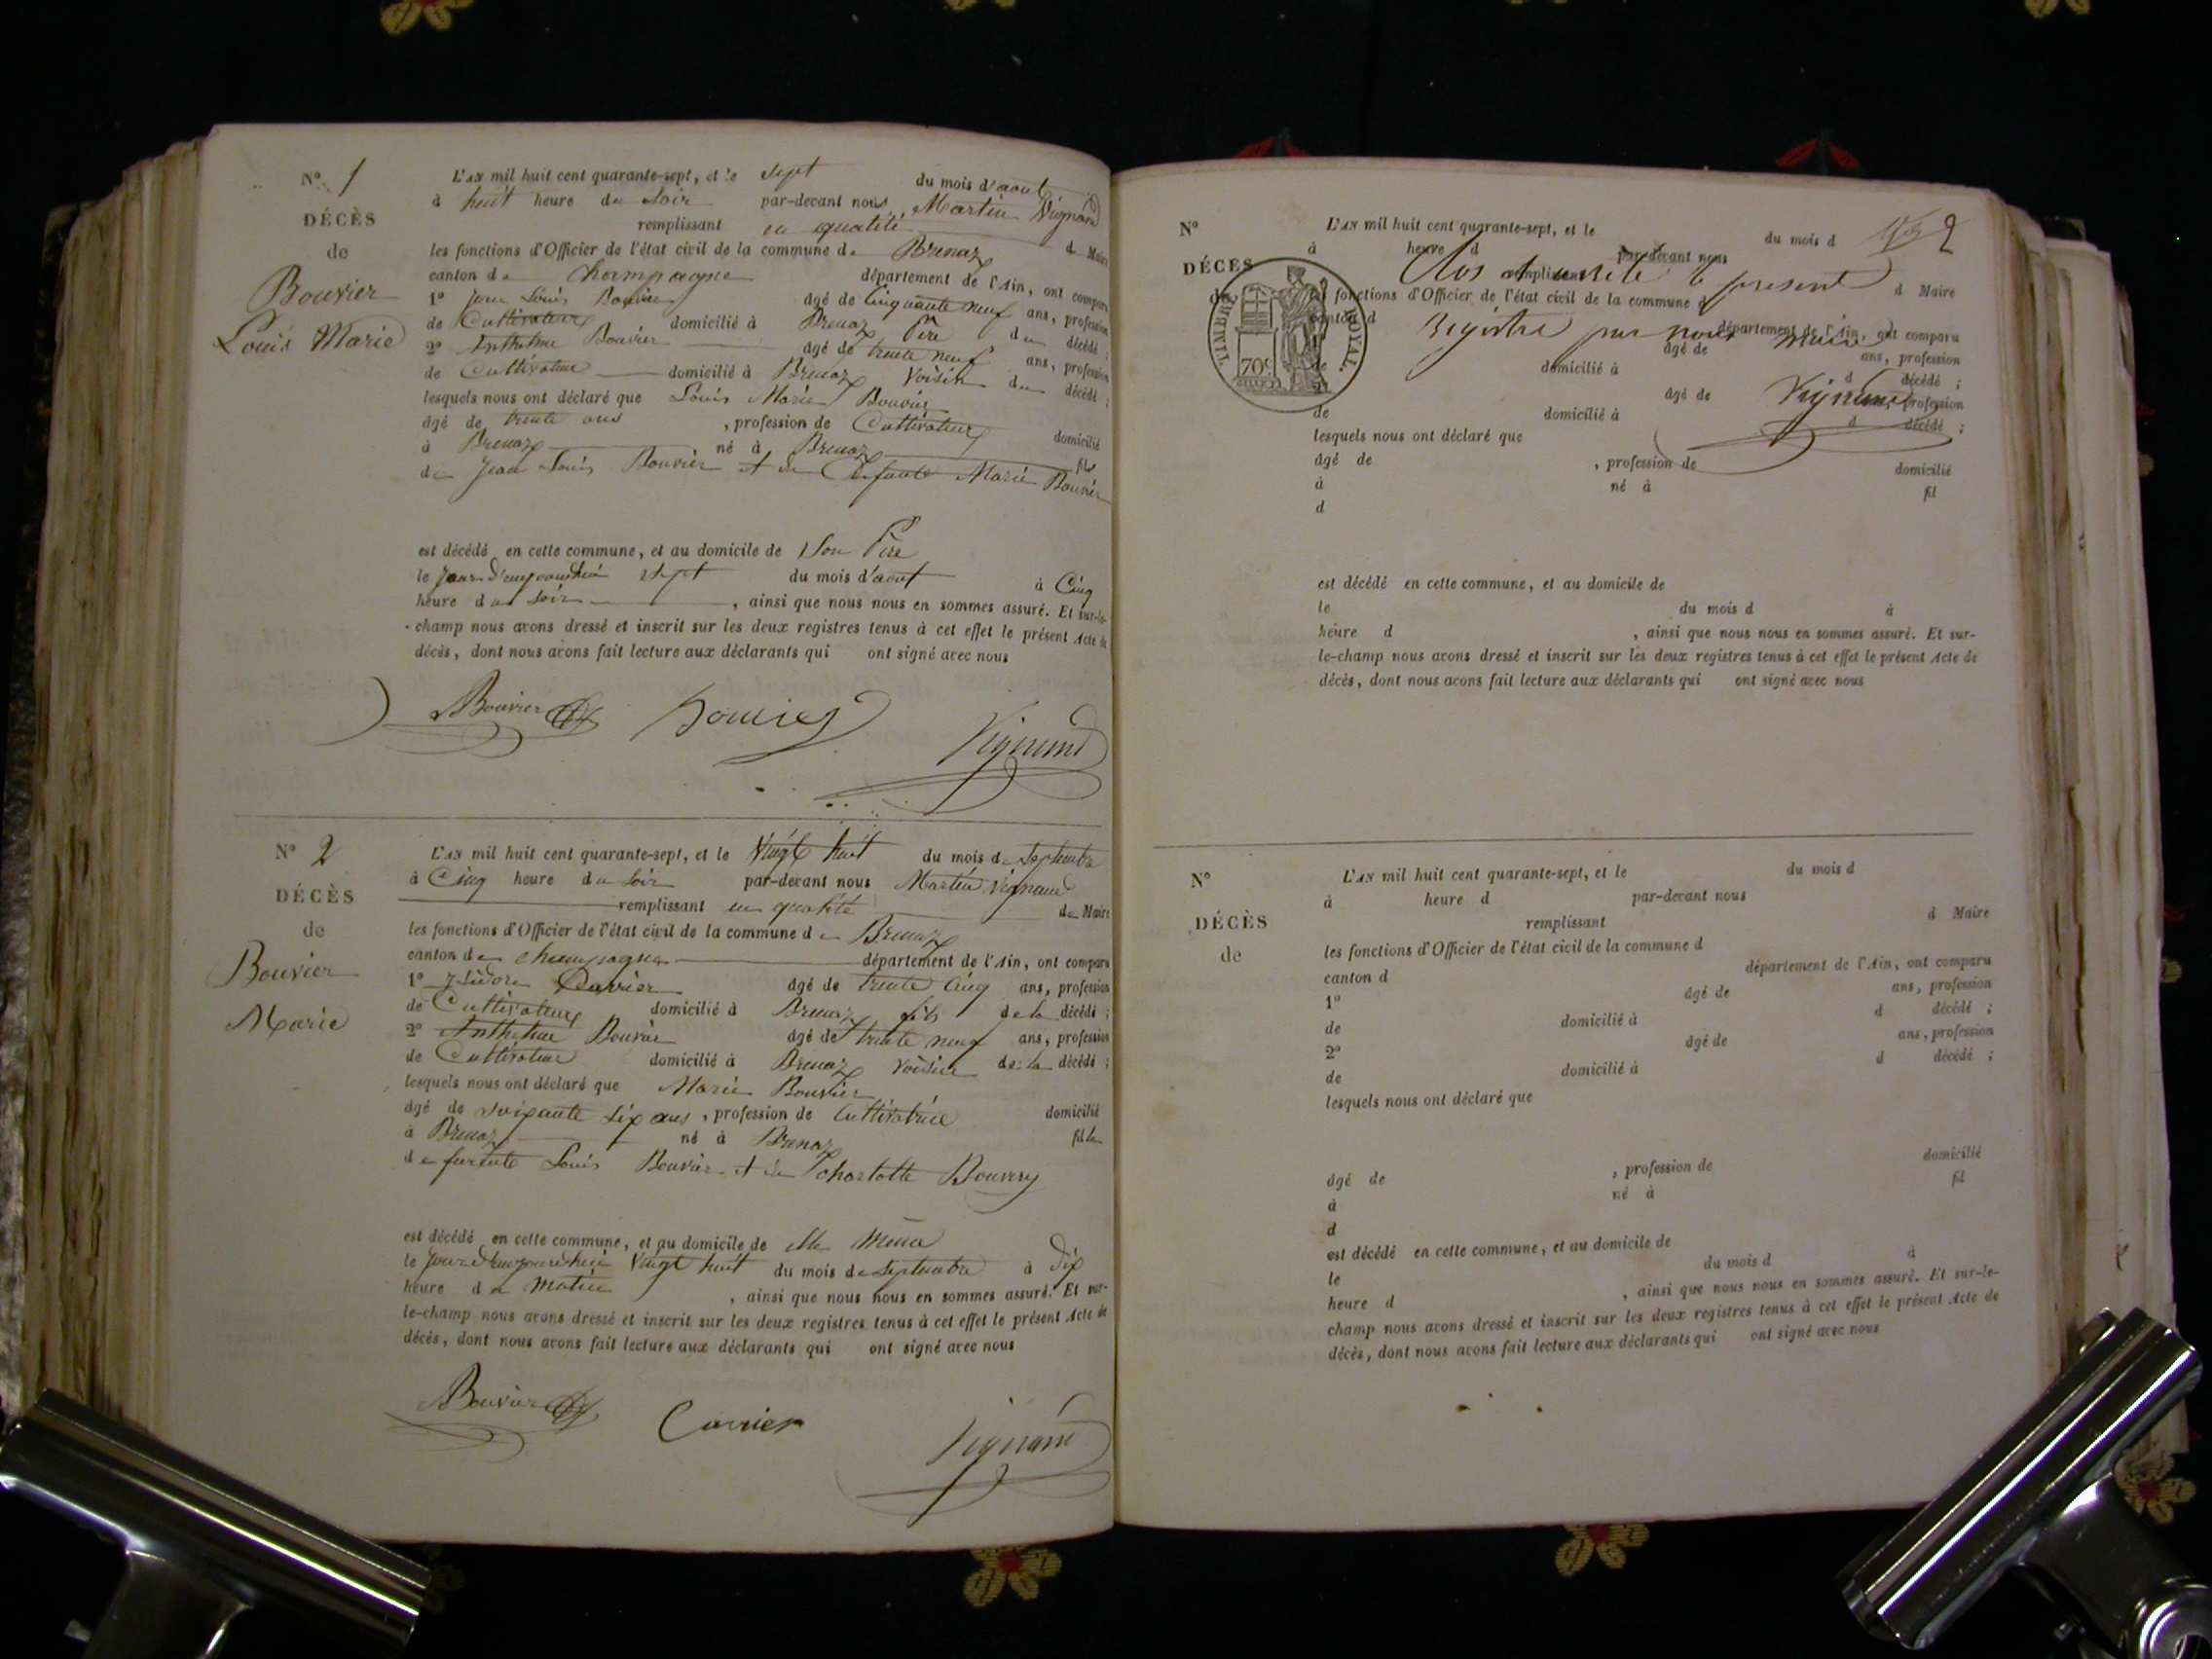 Nº 1
DÉCÈS
de
Bouvier
Louis Marie
L'AN mil huit cent quarante-sept, et le sept du mois d'aout
à huit heure du Soir par-devant nous Martin Vignand
remplissant en qualité d Maire
les fonctions d'Officier de l'état civil de la commune de Brenaz
canton de Champagne département de l'Ain, ont comparu
1º Jean Louis Bouvier âgé de Cinquante neuf ans, profession
de Cultivateur domicilié à Brenaz Père du décédé ;
2º Anthelme Bouvier âgé de trente neuf ans, profession
de Cultivateur domicilié à Brenaz Voisin du décédé ;
lesquels nous ont déclaré que Louis Marie Bouvier
âgé de trente ans , profession de Cultivateur domicilié
à Brenaz né à Brenaz fils
de Jean Louis Bouvier et de Marie Bouvier
est décédé en cette commune, et au domicile de Son Père
le Jour d'aujourd'hui sept du mois d'aout à Cinq
heure du Soir , ainsi que nous nous en sommes assuré. Et sur-le-
champ nous avons dressé et inscrit sur les deux registres tenus à cet effet le présent Acte de
décès, dont nous avons fait lecture aux déclarants qui ont signé avec nous
Bouvier Bouvier Vignand
Nº 2
DÉCÈS
de
Bouvier
Marie
L'AN mil huit cent quarante-sept, et le Vingt huit du mois de Septembre
à Cinq heure du Soir par-devant nous Martin Vignand
remplissant en qualité de Maire
les fonctions d'Officier de l'état civil de la commune de Brenaz
canton de Champagne département de l'Ain, ont comparu
1º Isidore Cuvrier âgé de trente Cinq ans, profession
de Cultivateur domicilié à Brenaz fils de la décédé ;
2º Anthelme Bouvier âgé de trente neuf ans, profession
de Cultivateur domicilié à Brenaz Voisin de la décédé ;
lesquels nous ont déclaré que Marie Bouvier
âgé de Soixante Six ans , profession de Cultivatrice domicilié
à Brenaz né à Brenaz fille
de Louis Bouvier et de Charlotte Bouvry
est décédé en cette commune, et au domicile de Elle Même
le Jour d'aujourd'hui Vingt huit du mois de Septembre à Dix
heure du Matin , ainsi que nous nous en sommes assuré. Et sur-
le-champ nous avons dressé et inscrit sur les deux registres tenus à cet effet le présent Acte de
décès, dont nous avons fait lecture aux déclarants qui ont signé avec nous
Bouvier Cuvrier Vignand
2
Nº
DÉCÈS
de
TIMBRE ROYAL.
70c
L'AN mil huit cent quarante-sept, et le du mois d
à heure d par-devant nous
Clos et arrêté le présent
remplissant d Maire
les fonctions d'Officier de l'état civil de la commune d
canton d département de l'Ain, ont comparu
Registre par nous Maire
1º âgé de ans, profession
de domicilié à d décédé ;
Vignand
2º âgé de ans, profession
de domicilié à d décédé ;
lesquels nous ont déclaré que
âgé de , profession de domicilié
à né à fil
d
est décédé en cette commune, et au domicile de
le du mois d à
heure d , ainsi que nous nous en sommes assuré. Et sur-
le-champ nous avons dressé et inscrit sur les deux registres tenus à cet effet le présent Acte de
décès, dont nous avons fait lecture aux déclarants qui ont signé avec nous
Nº
DÉCÈS
de
L'AN mil huit cent quarante-sept, et le du mois d
à heure d par-devant nous
remplissant d Maire
les fonctions d'Officier de l'état civil de la commune d
canton d département de l'Ain, ont comparu
1º âgé de ans, profession
de domicilié à d décédé ;
2º âgé de ans, profession
de domicilié à d décédé ;
lesquels nous ont déclaré que
âgé de , profession de domicilié
à né à fil
d
est décédé en cette commune, et au domicile de
le du mois d à
heure d , ainsi que nous nous en sommes assuré. Et sur-le-
champ nous avons dressé et inscrit sur les deux registres tenus à cet effet le présent Acte de
décès, dont nous avons fait lecture aux déclarants qui ont signé avec nous